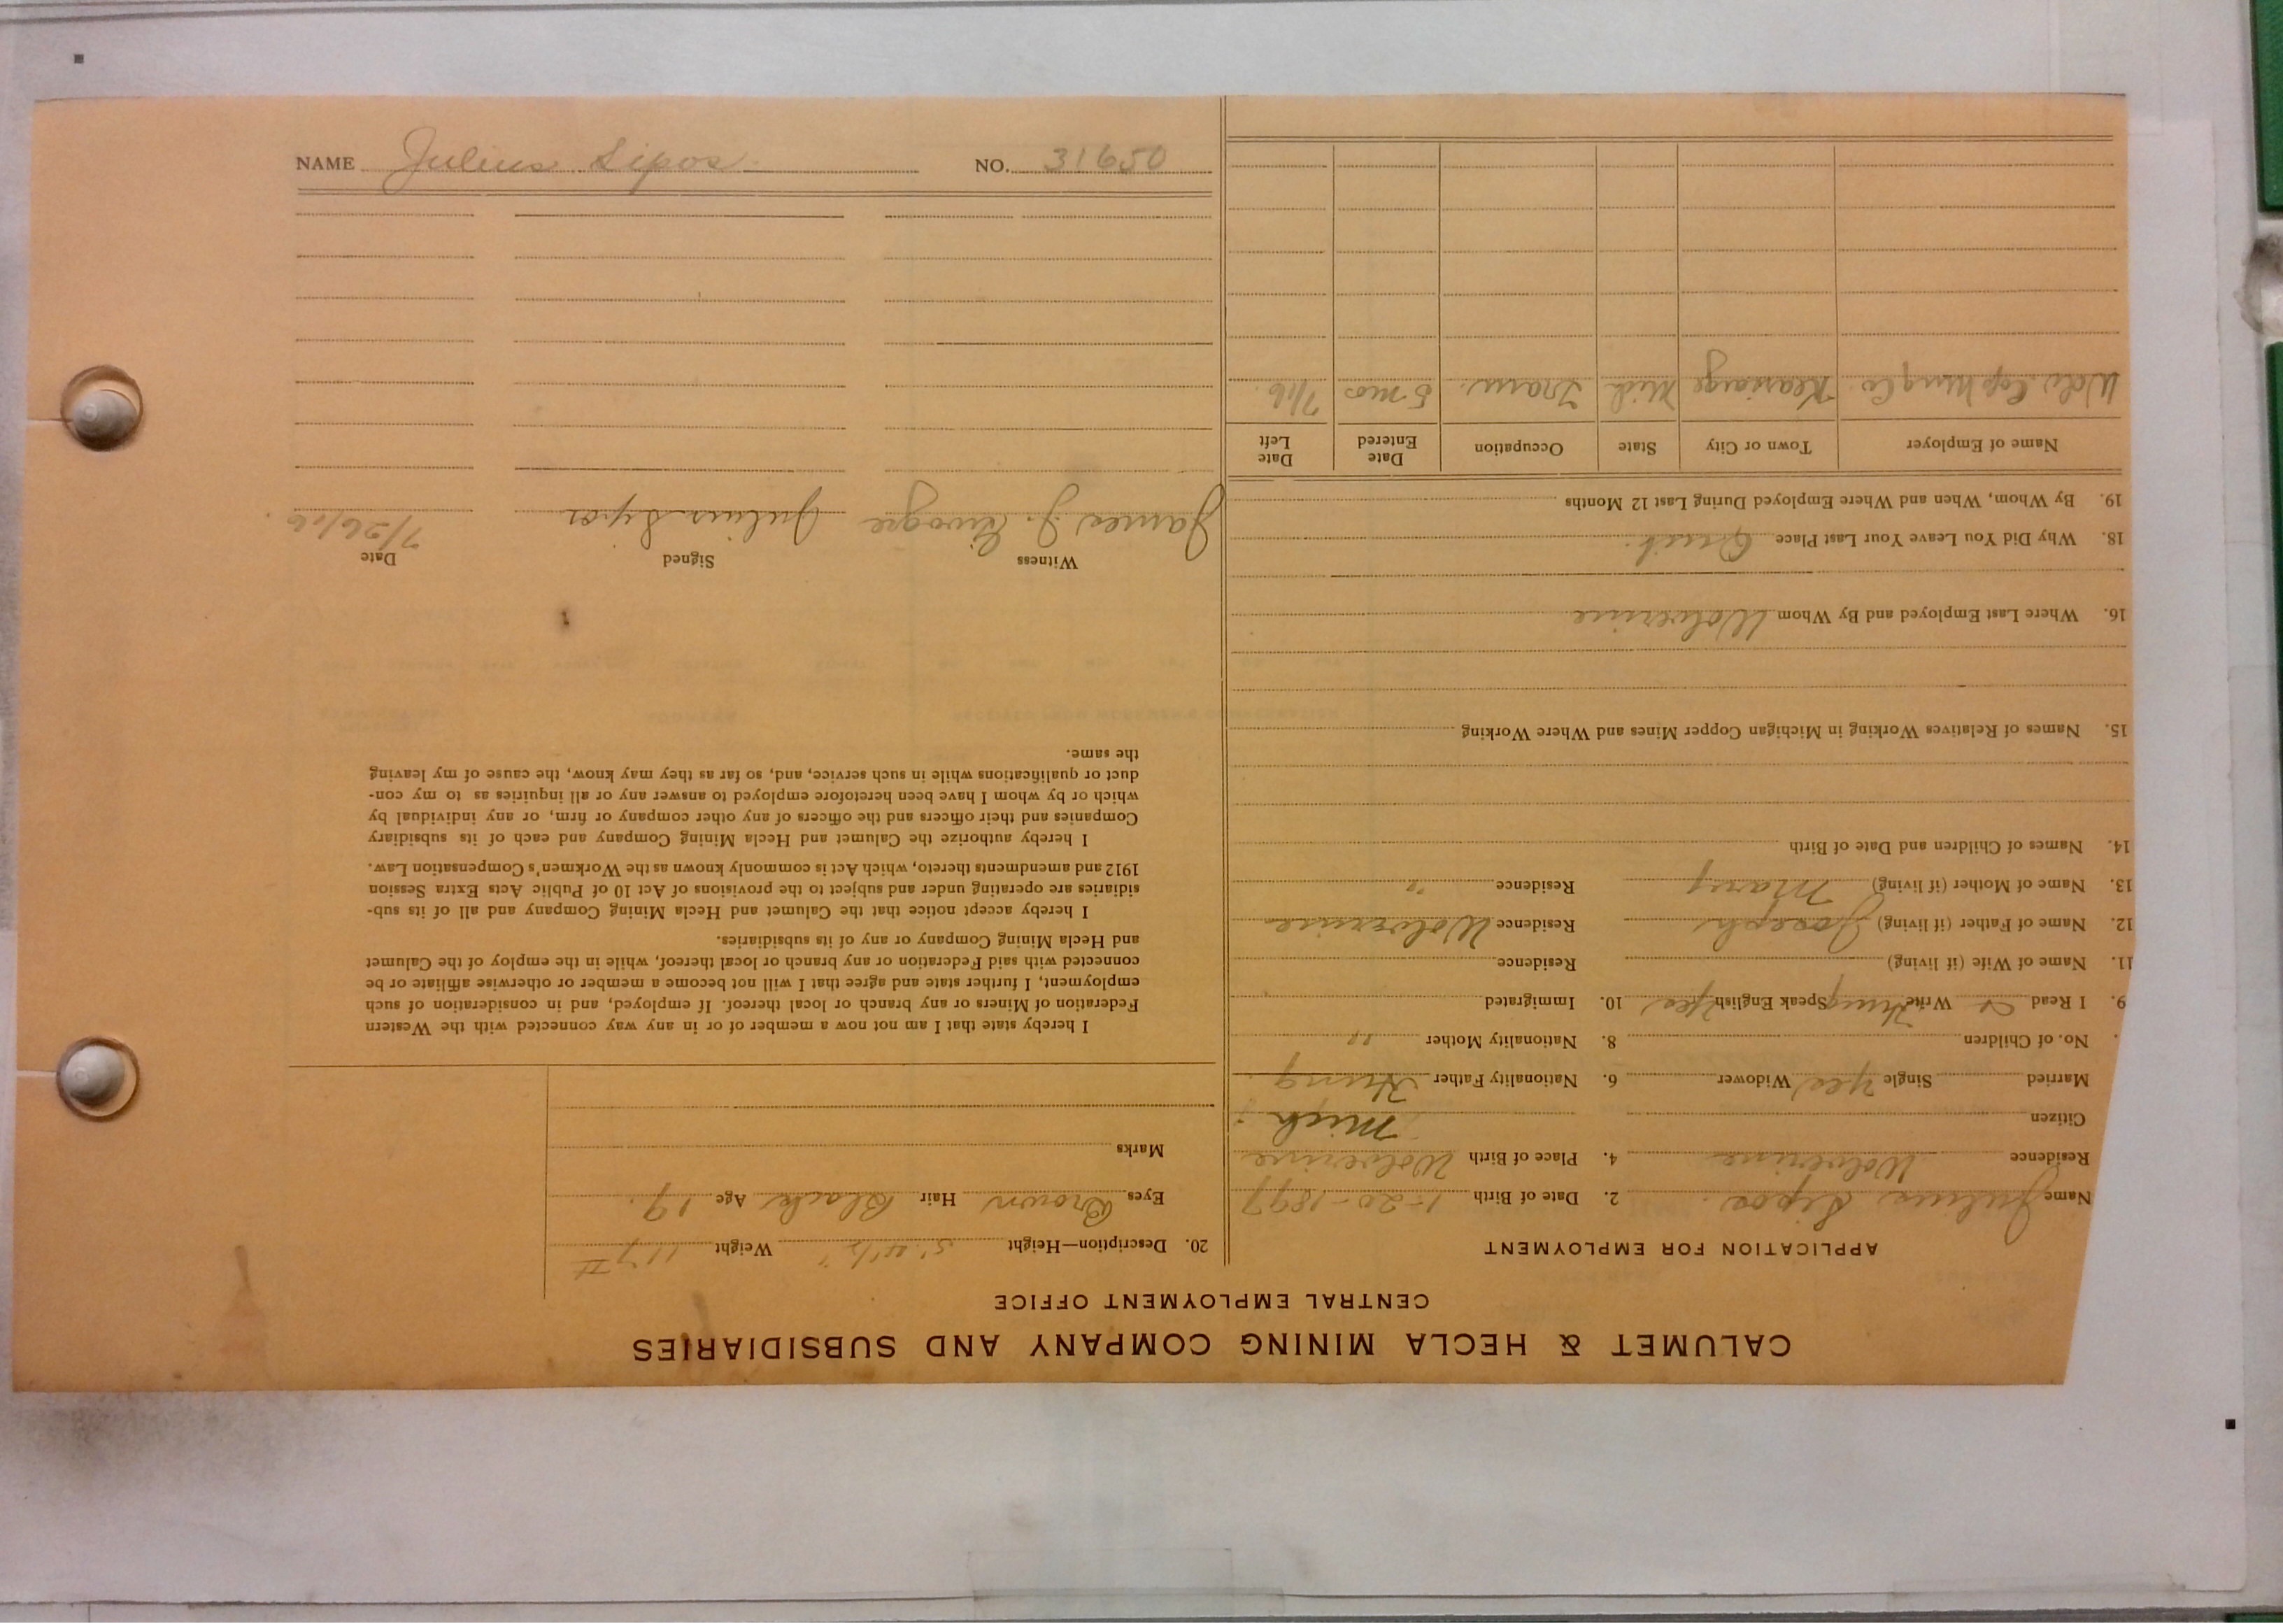 NAME Julius Sipos NO. 31650
CALUMET & HECLA MINING COMPANY AND SUBSIDIARIES
CENTRAL EMPLOYMENT OFFICE
APPLICATION FOR EMPLOYMENT
Name Julius Sipos. 2. Date of Birth 1-20-1897
Residence Wolverine 4. Place of Birth Wolverine
Citizen Mich
Married Single Yes Widower 6. Nationality Father Hung.
No. of Children 8. Nationality Mother "
9. I Read & Write Hung Speak English Yes 10. Immigrated
11. Name of Wife (if living) Residence
12. Name of Father (if living) Joseph Residence Wolverine
13. Name of Mother (if living) Mary Residence "
14. Names of Children and Date of Birth
15. Names of Relatives Working in Michigan Copper Mines and Where Working
16. Where Last Employed and By Whom Wolverine
18. Why Did You Leave Your Last Place Quit.
19. By Whom, When and Where Employed During Last 12 Months
Name of Employer Town or City State Occupation Date Entered Date Left
Wolv. Cop Ming Co. Kearsarge Mich Tram. 5 mos 7/16.
20. Description—Height 5' 4 1/2" Weight 117
Eyes Brown Hair Black Age 19.
Marks
I hereby state that I am not now a member of or in any way connected with the Western
Federation of Miners or any branch or local thereof. If employed, and in consideration of such
employment, I further state and agree that I will not become a member or otherwise affiliate or be
connected with said Federation or any branch or local thereof, while in the employ of the Calumet
and Hecla Mining Company or any of its subsidiaries.
I hereby accept notice that the Calumet and Hecla Mining Company and all of its sub-
sidiaries are operating under and subject to the provisions of Act 10 of Public Acts Extra Session
1912 and amendments thereto, which Act is commonly known as the Workmen's Compensation Law.
I hereby authorize the Calumet and Hecla Mining Company and each of its subsidiary
Companies and their officers and the officers of any other company or firm, or any individual by
which or by whom I have been heretofore employed to answer any or all inquiries as to my con-
duct or qualifications while in such service, and, so far as they may know, the cause of my leaving
the same.
Witness Signed Date
James J. Julius Sipos 7/26/16